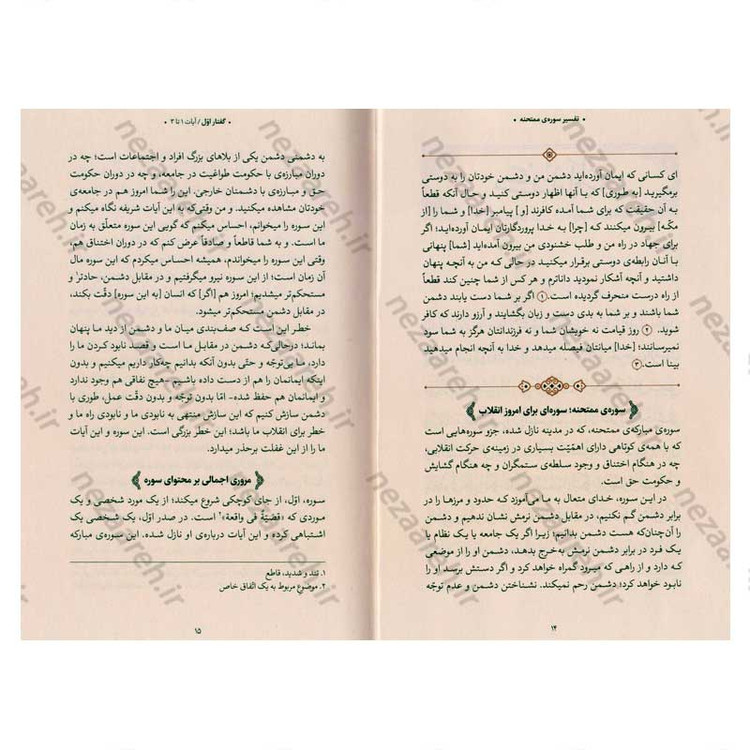 تفسیر سوره‌ی ممتحنه •
ای کسانی که ایمان آورده‌اید دشمن من و دشمن خودتان را به دوستی
برمگیرید [به طوری] که با آنها اظهار دوستی کنید و حال آنکه قطعاً
به آن حقیقت که برای شما آمده کافرند [و] پیامبر [خدا] و شما را [از
مکّه] بیرون میکنند که [چرا] به خدا پروردگارتان ایمان آورده‌اید؛ اگر
برای جهاد در راه من و طلب خشنودی من بیرون آمده‌اید [شما] پنهانی
با آنان رابطه‌ی دوستی برقرار میکنید در حالی که من به آنچه پنهان
داشتید و آنچه آشکار نمودید داناترم و هر کس از شما چنین کند قطعاً
از راه درست منحرف گردیده است. ۱ اگر بر شما دست یابند دشمن
شما باشند و بر شما به بدی دست و زبان بگشایند و آرزو دارند که کافر
شوید. ۲ روز قیامت نه خویشان شما و نه فرزندانتان هرگز به شما سود
نمیرسانند؛ [خدا] میانتان فیصله میدهد و خدا به آنچه انجام میدهید
بینا است. ۳
سوره‌ی ممتحنه؛ سوره‌ای برای امروز انقلاب
سوره‌ی مبارکه‌ی ممتحنه، که در مدینه نازل شده، جزو سوره‌هایی است
که با همه‌ی کوتاهی دارای اهمّیّت بسیاری در زمینه‌ی حرکت انقلابی،
چه در هنگام اختناق و وجود سلطه‌ی ستمگران و چه هنگام گشایش
و حکومت حق است.
در این سوره، خدای متعال به ما می‌آموزد که حدود و مرزها را در
برابر دشمن گم نکنیم، در مقابل دشمن نرمش نشان ندهیم و دشمن
را آن‌چنان‌که هست دشمن بدانیم؛ زیرا اگر یک جامعه یا یک نظام یا
یک فرد در برابر دشمن نرمش به‌خرج بدهد، دشمن او را از موضعی
که دارد و از راهی که میرود گمراه خواهد کرد و اگر دستش برسد او را
نابود خواهد کرد؛ دشمن رحم نمیکند. نشناختن دشمن و عدم توجّه
۱۴
• گفتار اوّل / آیات ۱ تا ۳ •
به دشمنیِ دشمن یکی از بلاهای بزرگ افراد و اجتماعات است؛ چه در
دوران مبارزه‌ی با حکومت طواغیت در جامعه، و چه در دوران حکومت
حق و مبارزه‌ی با دشمنان خارجی. این را شما امروز هم در جامعه‌ی
خودتان مشاهده میکنید. و من وقتی‌که به این آیات شریفه نگاه میکنم و
این سوره را میخوانم، احساس میکنم که گویی این سوره متعلّق به زمان
ما است. و به شما قاطعاً و صادقاً عرض کنم که در دوران اختناق هم،
وقتی این سوره را میخواندم، همیشه احساس میکردم که این سوره مال
آن زمان است؛ از این سوره نیرو میگرفتیم و در مقابل دشمن، حادتر۱ و
مستحکم‌تر میشدیم؛ امروز هم [اگر] که انسان [به این سوره] دقّت بکند،
در مقابل دشمن مستحکم‌تر میشود.
خطر این است که صف‌بندی میان ما و دشمن از دید ما پنهان
بماند؛ درحالی‌که دشمن در مقابل ما است و قصد نابود کردن ما را
دارد، ما بی‌توجّه و حتّی بدون آنکه بدانیم چه‌کار داریم میکنیم و بدون
اینکه ایمانمان را هم از دست داده باشیم -هیچ نفاقی هم وجود ندارد
و ایمان هم حفظ شده- امّا بدون توجّه و بدون دقّت عمل، طوری با
دشمن سازش کنیم که این سازش منتهی به نابودی ما و نابودی راه ما و
خطر برای انقلاب ما باشد؛ این خطر بزرگی است. این سوره و این آیات
ما را از این غفلت برحذر میدارد.
مروری اجمالی بر محتوای سوره
سوره، اوّل، از جای کوچکی شروع میکند؛ از یک مورد شخصی و یک
موردی که «قضیّةٌ فی واقعة»۲ است. در صدر اوّل، یک شخصی یک
اشتباهی کرده و این آیات درباره‌ی او نازل شده. این سوره‌ی مبارکه
۱. تند و شدید، قاطع
۲. موضوع مربوط به یک اتّفاق خاص
۱۵
nezaareh.ir